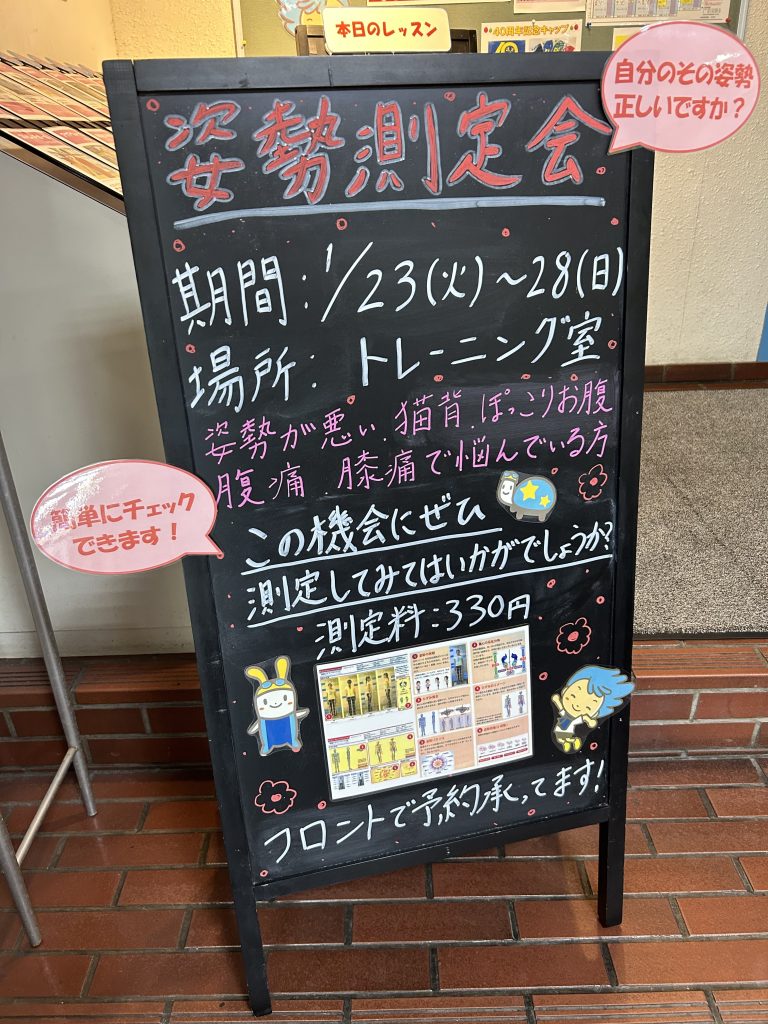 本日のレッスン
40周年記念キャンプ
自分のその姿勢
正しいですか？
姿勢測定会
期間：1/23(火)～28(日)
場所：トレーニング室
姿勢が悪い、猫背、ぽっこりお腹
腹痛 膝痛で悩んでいる方
簡単にチェック
できます！
この機会にぜひ
測定してみてはいかがでしょうか？
測定料：330円
フロントで予約承ってます！